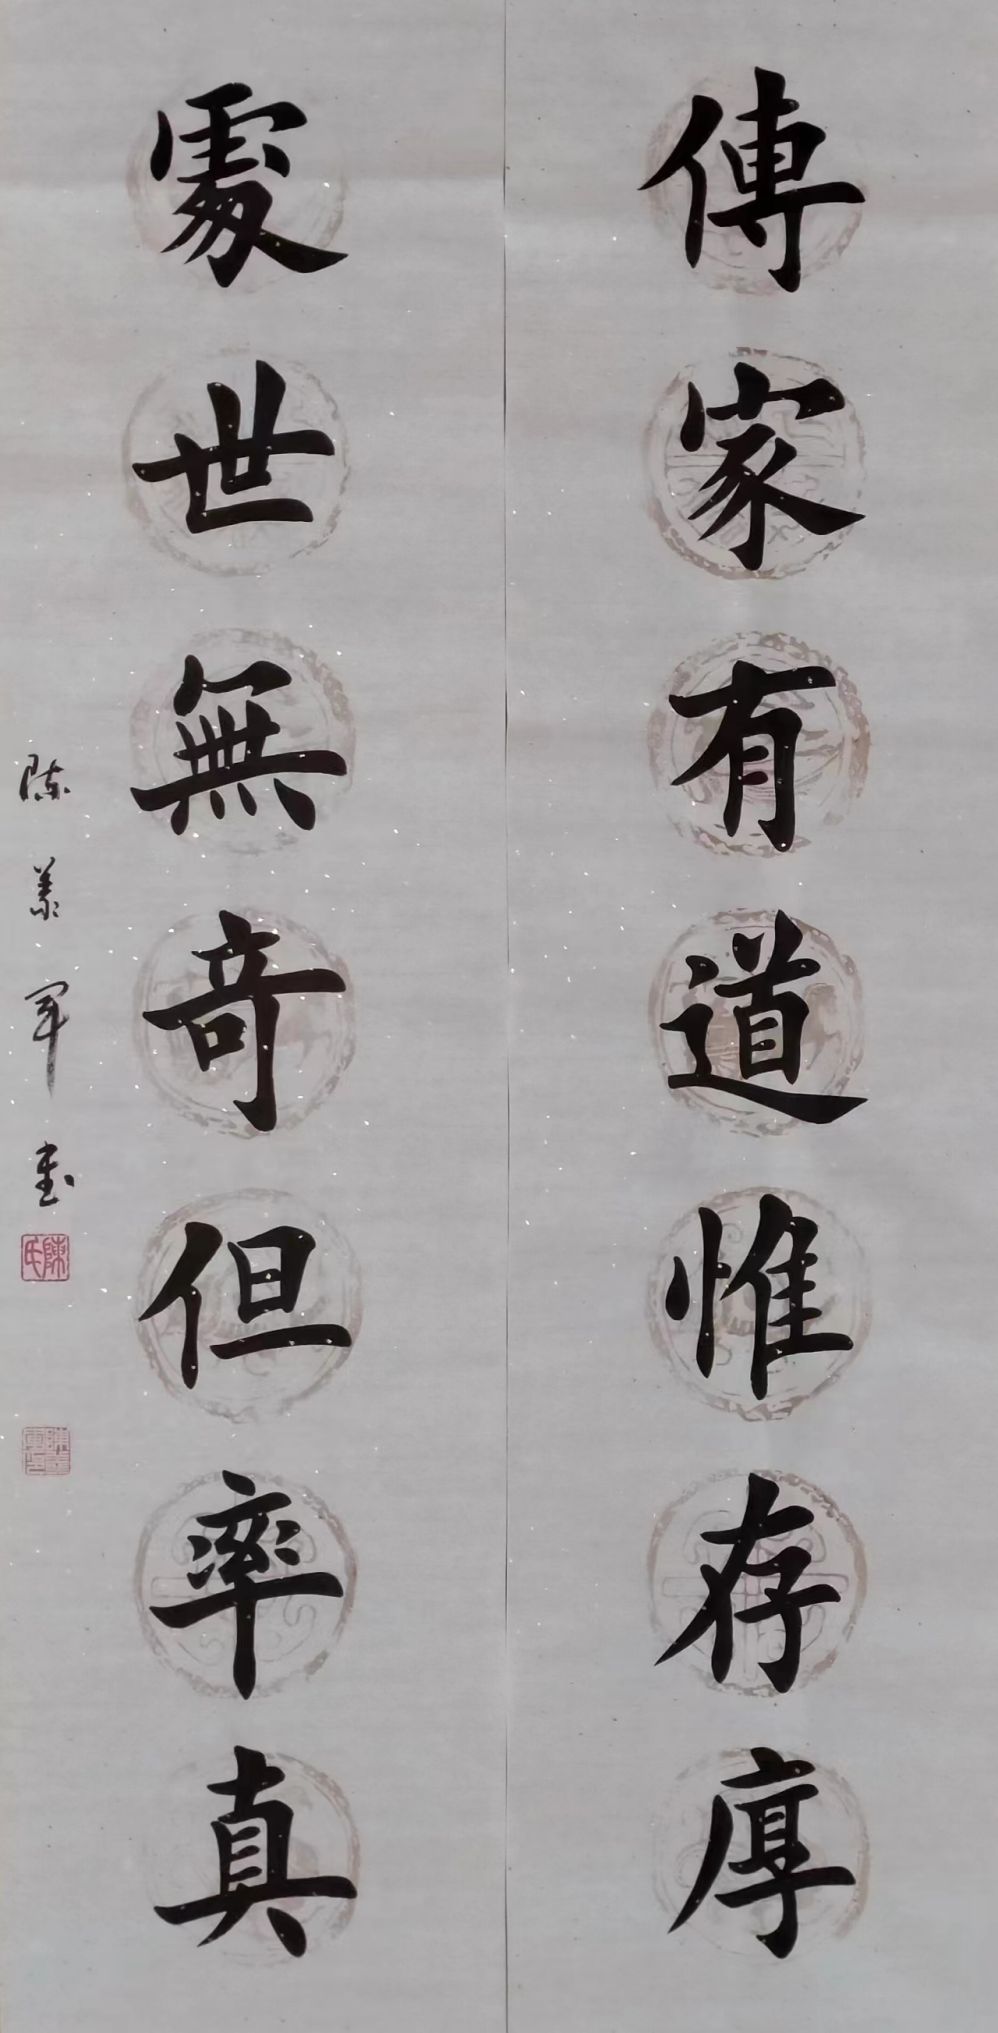 傳家有道惟存厚
處世無奇但率真
陈美军書
陳氏